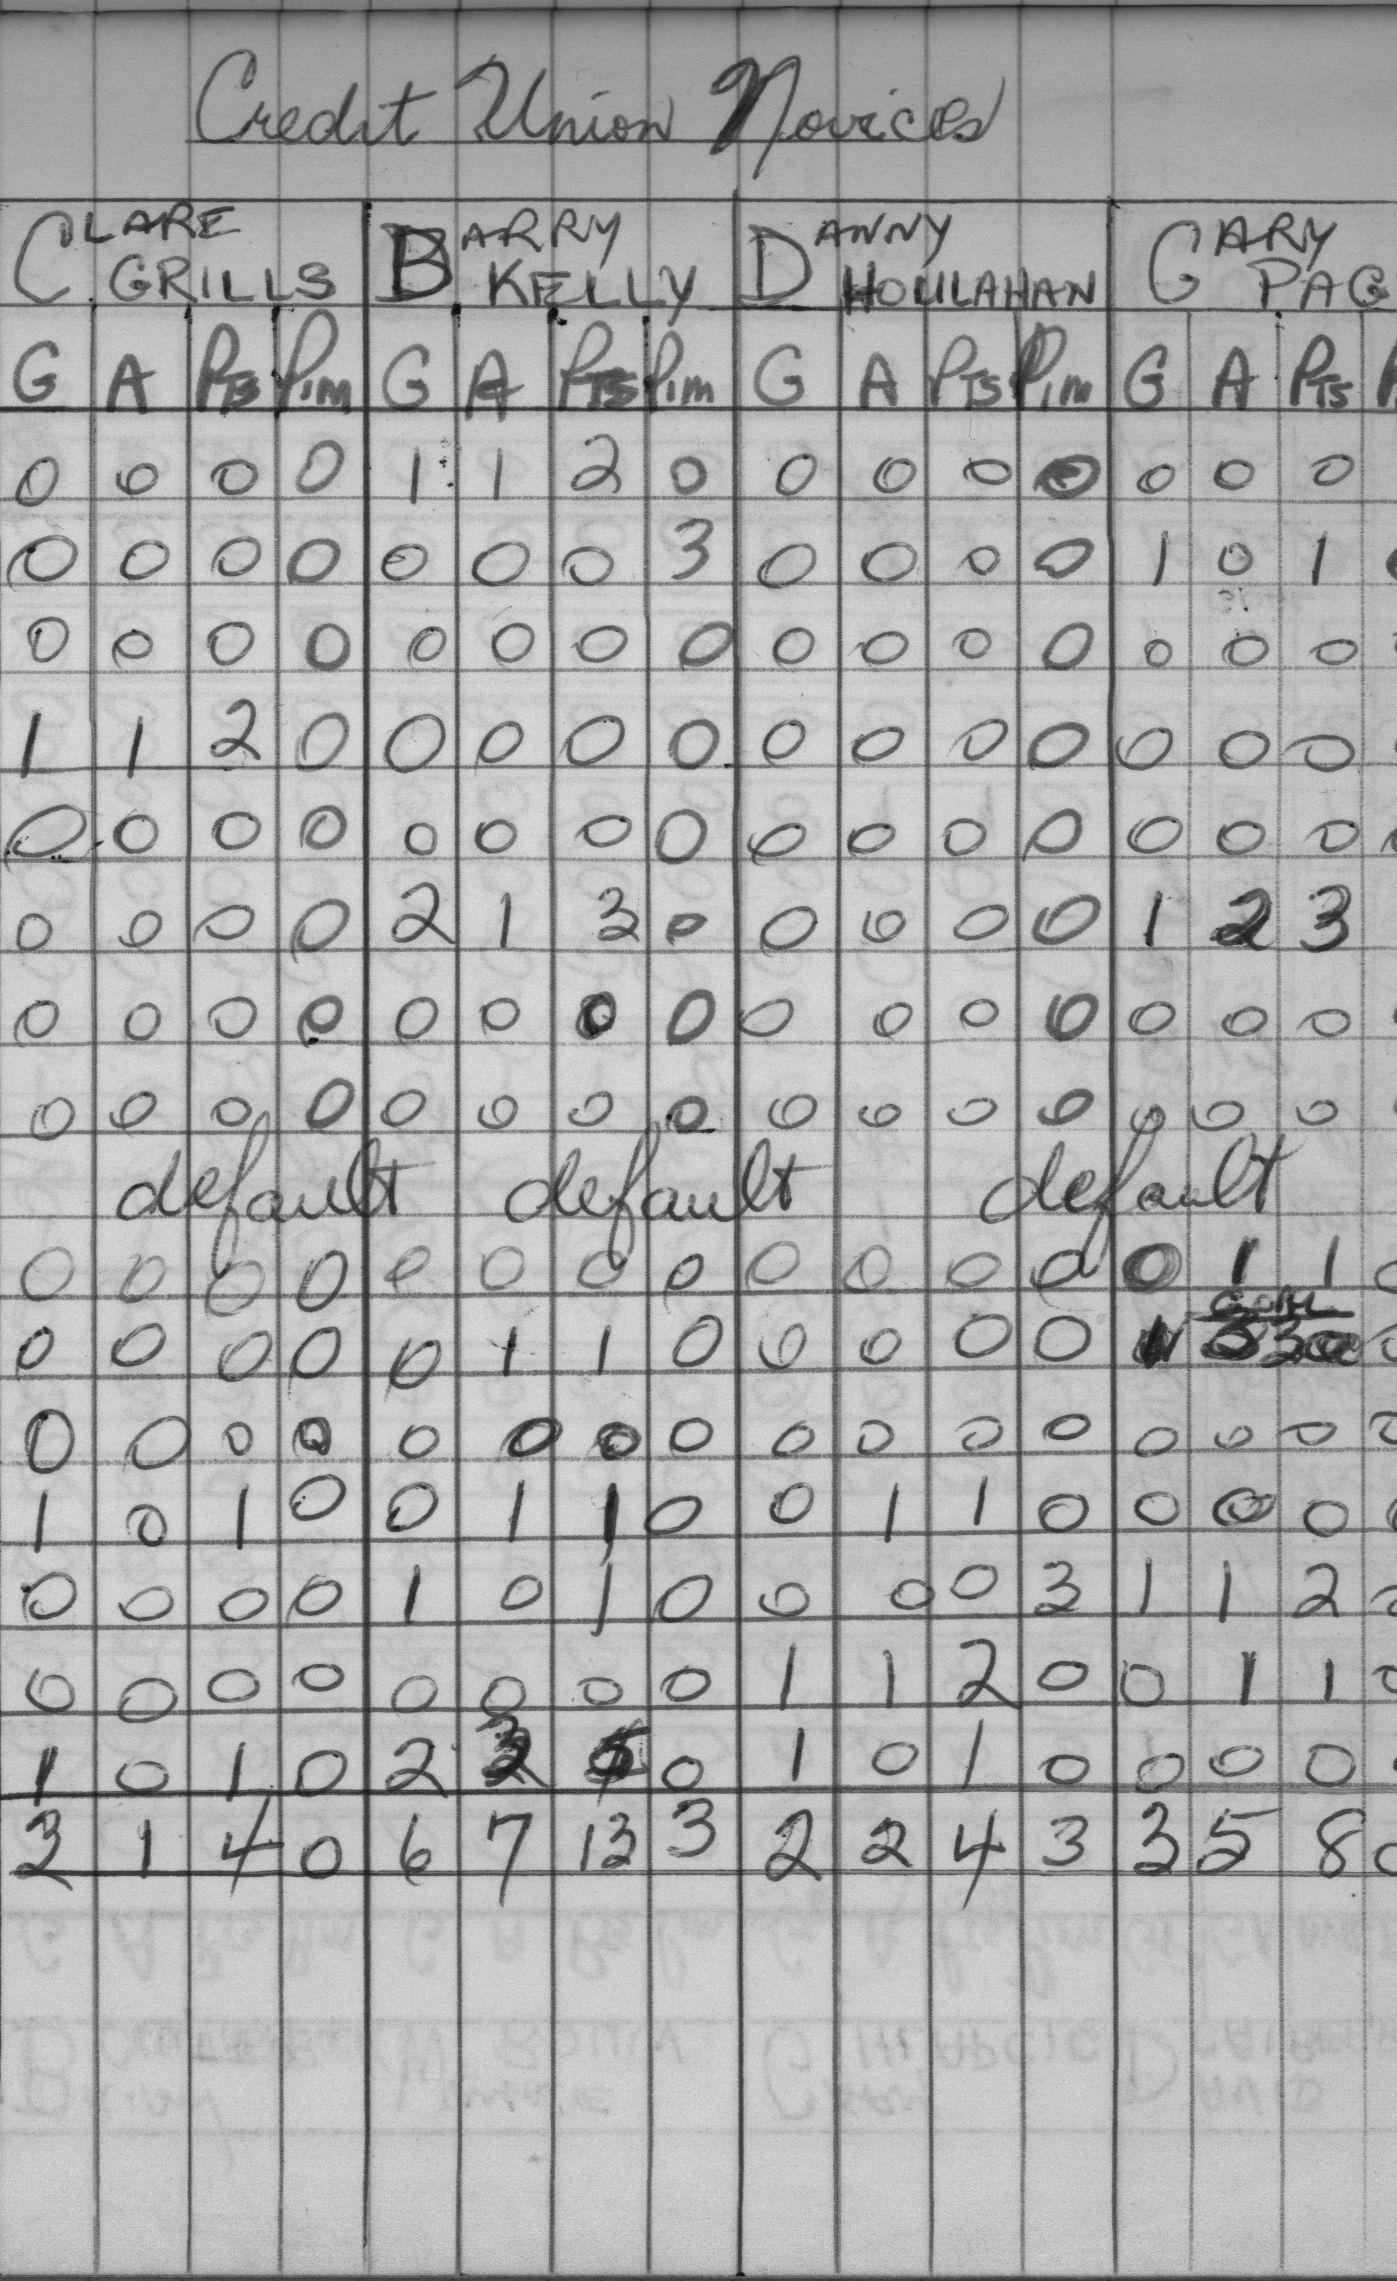 Credit Union Novices
CLARE GRILLS BARRY KELLY DANNY HOULAHAN GARY PAG
G A Pts Pim G A Pts Pim G A Pts Pim G A Pts
0 0 0 0 1 1 2 0 0 0 0 0 0 0 0
0 0 0 0 0 0 0 3 0 0 0 0 1 0 1
0 0 0 0 0 0 0 0 0 0 0 0 0 0 0
1 1 2 0 0 0 0 0 0 0 0 0 0 0 0
0 0 0 0 0 0 0 0 0 0 0 0 0 0 0
0 0 0 0 2 1 3 0 0 0 0 0 1 2 3
0 0 0 0 0 0 0 0 0 0 0 0 0 0 0
0 0 0 0 0 0 0 0 0 0 0 0 0 0 0
default default default
0 0 0 0 0 0 0 0 0 0 0 0 0 1 1
0 0 0 0 0 1 1 0 0 0 0 0 GOAL
0 0 0 0 0 0 0 0 0 0 0 0 0 0 0 0
1 0 1 0 0 1 1 0 0 1 1 0 0 0 0
0 0 0 0 1 0 1 0 0 0 0 3 1 1 2
0 0 0 0 0 0 0 0 1 1 2 0 0 1 1
1 0 1 0 2 3 5 0 1 0 1 0 0 0 0
3 1 4 0 6 7 13 3 2 2 4 3 3 5 8